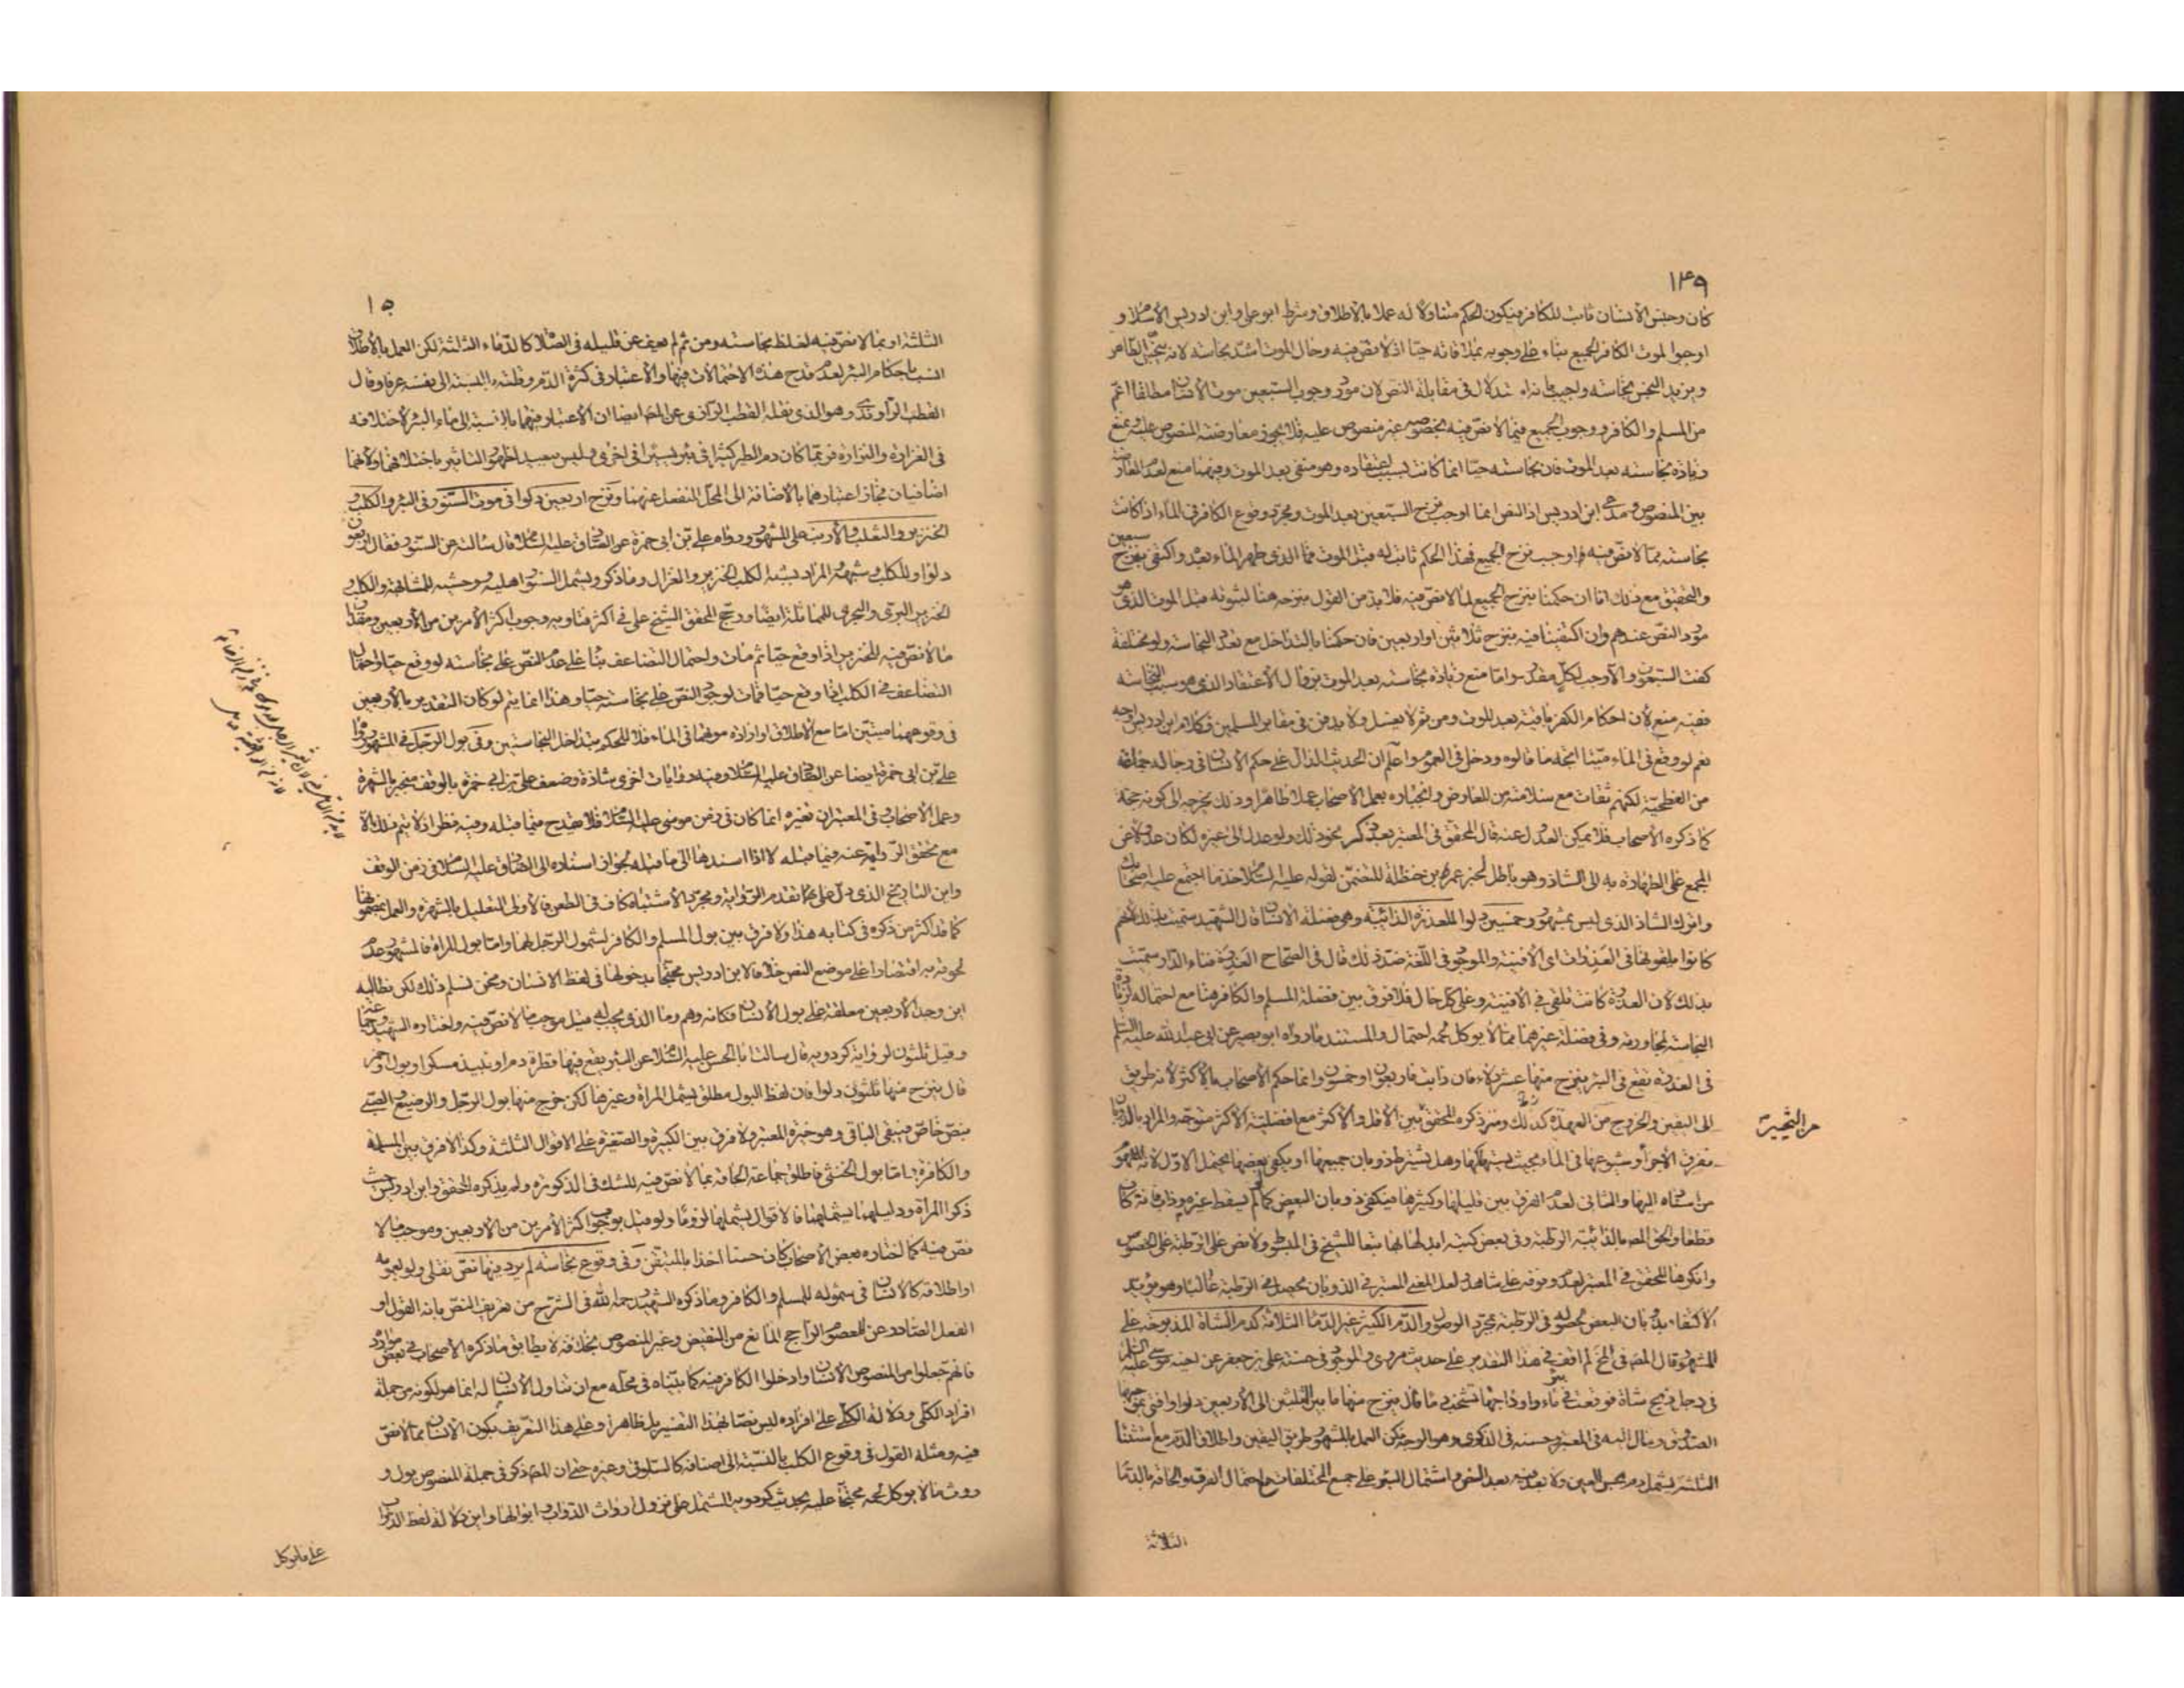 ١٤٩
كان وجنس الانسان ثابت للكافر فيكون الحكم متناولا له عملا بالاطلاق وشرط ابو علي وابن ادريس الاسلام و
اوجبوا لموت الكافر الجميع بناء على وجوبه بملاقاته حيا اذ لا نص فيه وحال الموت اشد نجاسة لانه ينجس الطاهر
ويزيد النجس نجاسة واجيب بانه استدلال في مقابلة النص لان مورد وجوب السبعين موت الانسان مطلقا اعم
من المسلم والكافر ووجوب الجميع فيما لا نص فيه بخصوصه غير منصوص عليه فلا يجوز معارضته المنصوص عليه ونمنع
زيادة نجاسته بعد الموت فان نجاسته حيا انما كانت بسبب اعتقاده وهو منفي بعد الموت وفيهما منع لعدم المعارضة
بين المنصوص ومدعى ابن ادريس اذ النص انما اوجب نزح السبعين بعد الموت ومجرد وقوع الكافر في الماء اذا كانت
نجاسته مما لا نص فيه واوجب نزح الجميع فهذا الحكم ثابت له قبل الموت فما الذي طهر الماء بعده واكتفى بنزح سبعين
والتحقيق مع ذلك انا ان حكمنا بنزح الجميع لما لا نص فيه فلا بد من القول بنزحه هنا لثبوته قبل الموت الذي هو
مورد النص عندهم وان اكتفينا فيه بنزح ثلاثين او اربعين فان حكمنا بالتداخل مع تعدد النجاسة ولو مختلفة
كفت السبعون والا وجب لكل مقدر واما منع زيادة نجاسته بعد الموت بزوال الاعتقاد الذي هو سبب النجاسة
ففيه منع لان احكام الكفر باقية بعد الموت ومن ثم لا يغسل ولا يدفن في مقابر المسلمين فكلام ابن ادريس اوجه
نعم لو وقع في الماء ميتا اتجه ما قالوه ودخل في العموم واعلم ان الحديث الدال على حكم الانسان في رجاله جماعة
من الفطحية لكنهم ثقات مع سلامته من المعارض وانجباره بعمل الاصحاب عملا ظاهرا وذلك يخرجه الى كونه حجة
كما ذكره الاصحاب فلا يمكن العدول عنه قال المحقق في المعتبر بعد ذكر نحو ذلك ولو عدل الى غيره لكان عدولا عن
المجمع على الطهارة به الى الشاذ وهو باطل لخبر عمر بن حنظلة المتضمن لقوله عليه السلام خذ ما اجتمع عليه اصحابك
واترك الشاذ الذي ليس بمشهور وخمسين دلوا للعذرة الذائبة وهو فضلة الانسان قال الشهيد سميت بذلك لانهم
كانوا يلقونها في العذرات اي الافنية والموجود في اللغة ضد ذلك قال في الصحاح العذرة فناء الدار سميت
بذلك لان العذرة كانت تلقى في الافنية وعلى كل حال فلا فرق بين فضلة المسلم والكافر هنا مع احتماله لزيادة
النجاسة لمجاورته وفي فضلة غيرهما مما لا يوكل لحمه احتمال والمستند ما رواه ابو بصير عن ابي عبد الله عليه السلم
في العذرة تقع في البئر ينزح منها عشر دلاء فان ذابت فاربعون او خمسون وانما حكم الاصحاب بالاكثر لانه طريق
الى اليقين والخروج من العهدة كذلك وما ذكره المحقق من التخيير بين الاقل والاكثر مع افضلية الاكثر متوجه والمراد بالذوبان
تفرق الاجزاء وشيوعها في الماء بحيث يستهلكها وهل يشترط ذوبان جميعها او يكفي بعضها يحتمل الاول لانه المفهوم
من اسناده اليها والثاني لعدم الفرق بين قليلها وكثيرها فيكفي ذوبان البعض كما لو سقط غيره وذاب فانه كاف
قطعا والحق المص بالذائبة الرطبة وفي بعض كتبه ابدلها بها تبعا للشيخ في المبسوط ولا نص على الرطبة على الخصوص
وانكرها المحقق في المعتبر لعدم وقوفه على شاهد ولعل المعنى المعتبر في الذوبان يحصل في الرطبة غالبا وهو مؤيد
الاكتفاء بذوبان البعض لحصوله في الرطبة بمجرد الوصول والدم الكثير غير الدماء الثلاثة كدم الشاة المذبوحة على
المشهور وقال المص في المخ لم اقف في هذا التقدير على حديث مروي والموجود في حسنة علي بن جعفر عن اخيه موسى عليه السلم
في رجل ذبح شاة فوقعت في بئر ماء واوداجها تشخب دما قال ينزح منها ما بين الثلثين الى الاربعين دلوا وافتى بموجبها
الصدوق ومال اليه في المعتبر وحسنه في الذكرى وهو الوجه لكن العمل بالمشهور طريق اليقين واطلاق الدم مع استثناء
الثلثة يشمل دم نجس العين ولا بعد فيه بعد النص واشتمال البئر على جمع المختلفات مع احتمال الفرق والحاقه بالدماء
الثلاثة
من التخيير
١٥
الثلثة او بما لا نص فيه لغلظ نجاسته ومن ثم لم يعف عن قليله في الصلاة كالدماء الثلثة لكن العمل بالاطلاق
انسب باحكام البئر لعدم قدح هذه الاحتمالات فيها والاعتبار في كثرة الدم وقلته بالنسبة الى نفسه عرفا وقال
القطب الراوندي وهو الذي نقله القطب الرازي عن المص ايضا ان الاعتبار فيهما بالنسبة الى ماء البئر لاختلافه
في الغزارة والنزارة فربما كان دم الطير كثيرا في بئر يسيرا في اخرى وليس ببعيد لظهور التاثير باختلافهما ولانهما
اضافيان فجاز اعتبارهما بالاضافة الى المحل المنفعل عنهما ونزح اربعين دلوا في موت السنور في البئر والكلب و
الخنزير والثعلب والارنب على المشهور ورواه علي بن ابي حمزة عن الصادق عليه السلام قال سالته عن السنور فقال اربعون
دلوا وللكلب وشبهه والمراد بشبه الكلب الخنزير والغزال وما ذكر ويشمل السنور اهليه ووحشيه للمشابهة والكلب و
الخنزير البري والبحري للمماثلة ايضا ورجح المحقق الشيخ علي في اكثر فتاويه وجوب اكثر الامرين من الاربعين ومقدار
ما لا نص فيه للخنزير اذا وقع حيا ثم مات واحتمال التضاعف بناء على عدم النص على نجاسته لو وقع حيا واحتمال
التضاعف في الكلب اذا وقع حيا فمات لوجود النص على نجاسته حيا وهذا انما يتم لو كان التقدير بالاربعين
في وقوعهما ميتين اما مع الاطلاق او ارادة موتهما في الماء فلا للحكم بتداخل النجاستين وفي بول الرجل في المشهور رواه
علي بن ابي حمزة ايضا عن الصادق عليه السلام وفيه روايات اخرى شاذة وضعف علي بن ابي حمزة بالوقف منجبر بالشهرة
وعمل الاصحاب وفي المعتبر ان تغيره انما كان في زمن موسى عليه السلام فلا يقدح فيما قبله وفيه نظر اذ لا يتم ذلك الا
مع تحقق الرواية عنه فيما قبله لا اذا اسندها الى ما قبله لجواز اسناده الى الصادق عليه السلام في زمن الوقف
واين التاريخ الذي دل على تقدم الرواية ومجرد الاشتباه كاف في الطعن فالاولى التعليل بالشهرة والعمل بمضمونها
كما قد اكثر من ذكره في كتابه هذا ولا فرق بين بول المسلم والكافر لشمول الرجل لهما واما بول المراة فالمشهور عدم
لحوقه به اقتصارا على موضع النص خلافا لابن ادريس محتجا بدخولها في لفظ الانسان ونحن نسلم ذلك لكن نطالبه
اين وجد الاربعين معلقة على بول الانسان فكانه وهم وما الذي يجب له قيل موجب ما لا نص فيه واختاره الشهيد وجماعة
وقيل ثلثون لرواية كردويه قال سالت ابا الحسن عليه السلام عن البئر يقع فيها قطرة دم او نبيذ مسكر او بول او خمر
قال ينزح منها ثلثون دلوا فان لفظ البول مطلق يشمل المراة وغيرها لكن خرج منها بول الرجل والرضيع والصبي
بنص خاص فيبقى الباقي وهو خيرة المعتبر ولا فرق بين الكبيرة والصغيرة على الاقوال الثلثة وكذا لا فرق بين المسلمة
والكافرة واما بول الخنثى فاطلق جماعة الحاقه بما لا نص فيه للشك في الذكورة ولم يذكره المحقق وابن ادريس حيث
ذكرا المراة ودليلهما يشملهما فالاقوال يشملها لزوما ولو قيل بوجوب اكثر الامرين من الاربعين وموجب ما لا
نص فيه كما اختاره بعض الاصحاب كان حسنا اخذا بالمتيقن وفي وقوع نجاسة لم يرد فيها نص نفي ولو لعمومه
او اطلاقه كالانسان في شموله للمسلم والكافر وما ذكره الشهيد رحمه الله في الشرح من تعريف النص بانه القول او
الفعل الصادر عن المعصوم الراجح المانع من النقيض وغير المنصوص بخلافه لا يطابق ما ذكره الاصحاب في بعض موارده
فانهم جعلوا من المنصوص الانسان وادخلوا الكافر فيه كما بيناه في محله مع ان تناول الانسان له انما هو لكونه من جملة
افراد الكلي ودلالة الكلي على افراده ليس نصا بهذا التفسير بل ظاهرا وعلى هذا التعريف يكون الانسان مما لا نص
فيه ومثله القول في وقوع الكلب بالنسبة الى اصنافه كالسلوقي وغيره حتى ان المص ذكر في جملة المنصوص بول و
روث ما لا يوكل لحمه محتجا عليه بحديث كردويه المشتمل على نزول ارواث الدواب وابوالها واين دلالة لفظ الدواب
على ما يوكل